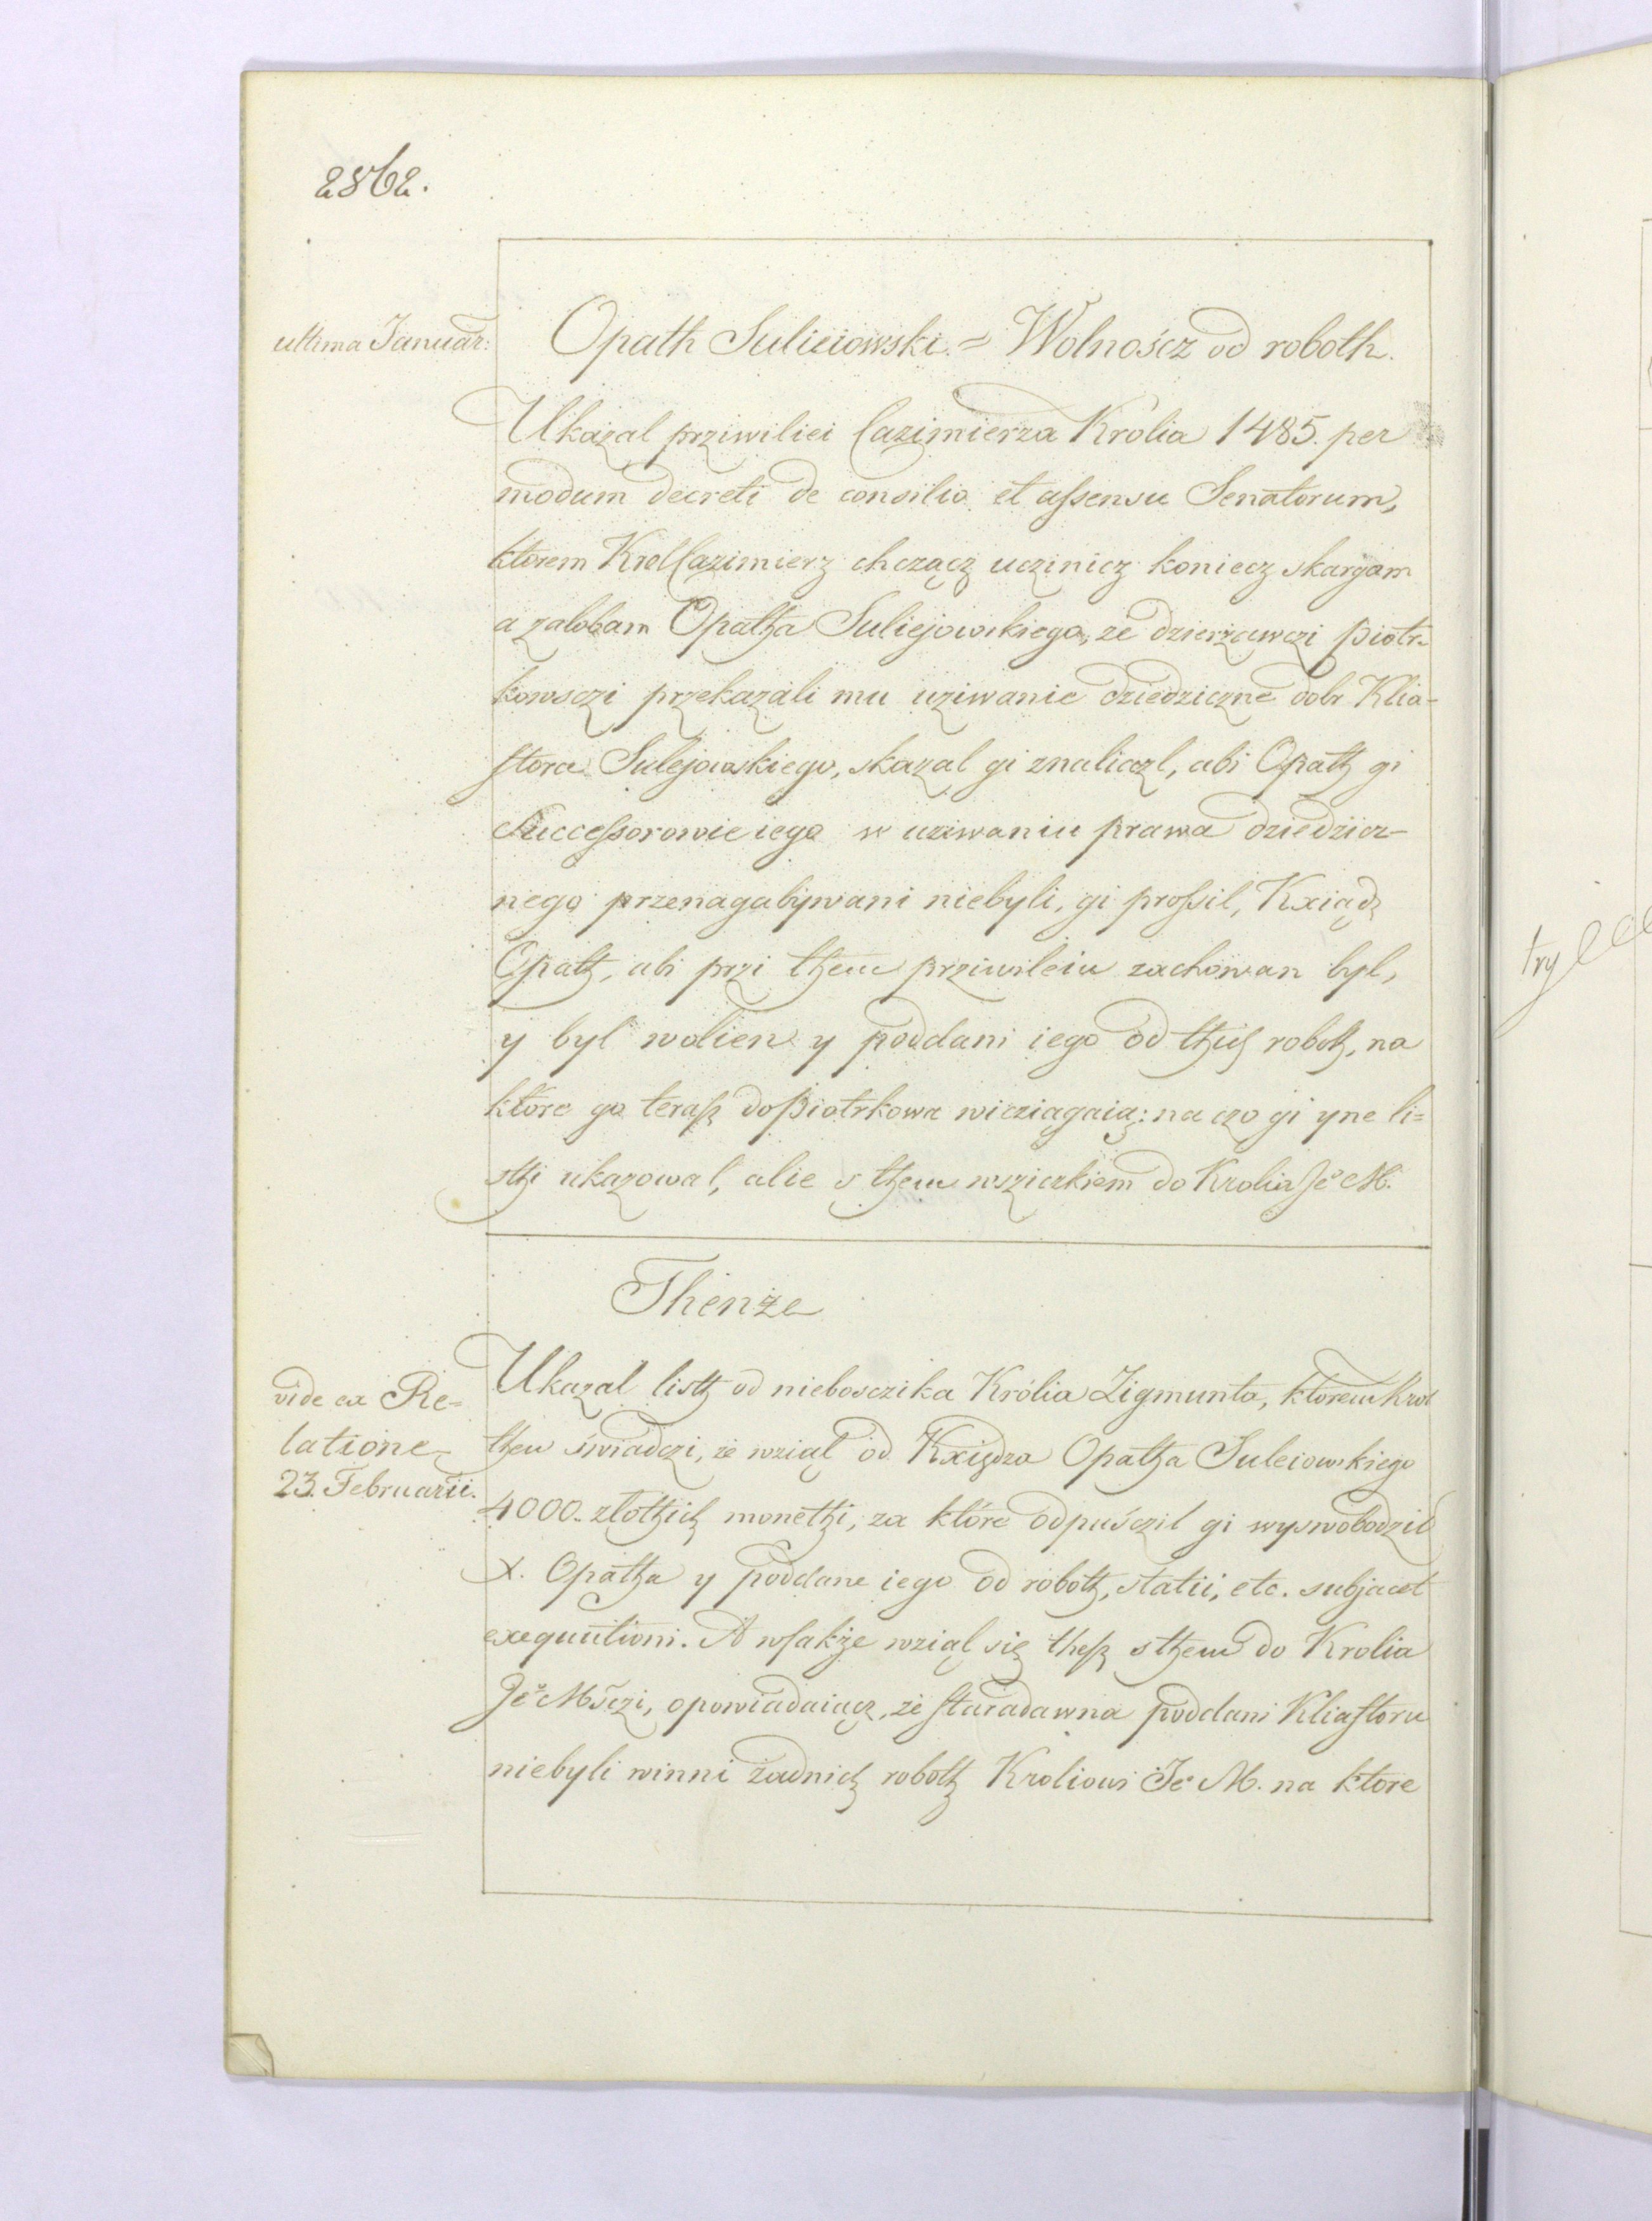 2862.
ultima Januar:
Opath Suliciowski. = Wolnoścz od roboth.
Ukazal prziwiliei Cazimierza Królia 1485. per
modum decreti de consilio et aſsensu Senatorum,
ktorem Krol Cazimierz chcząCz uczinicz koniecz skargam
a załobam Opatha Suliejowskiego, ze dzierżawczi Piotr-
kowsczi przekazali mu uziwanie dziedziczne dobr Klia-
ſtora Sulejowskiego, skazal gi znaliazl, abi Opath gi
Succeſsorowie iego w uziwaniu prawa dziedzicz-
nego przenagabywani niebyli, gi proſsil, Kxiądz
Opath, abi przi them prziwileiu zachowan byl,
y byl wolien y poddani iego od thich roboth, na
ktore go teraſz do Piotrkowa wicziągaią: na czo gi yne li=
sthi ukazowal, alie s them wsziczkiem do Krolia Je° M.
Thenże
vide ex Re=
latione
23. Februarii.
Ukazal listh od nieboszczika Królia Zigmunta, ktorem Krol
then świadczi, że wziąl od Kxiędza Opatha Suleiowskiego
4000. złothich monethi, za które odpuśczil gi wyswobodził
X. Opatha y poddane iego od roboth, statii, etc. subjacet
exequutioni. A wſakże wziąl się theſz s them do Krolia
Je° Mśczi, opowiadaiącz, że ſtaradawna poddani Kliaſtoru
niebyli winni żadnich roboth Kroliowi Je° M. na ktore